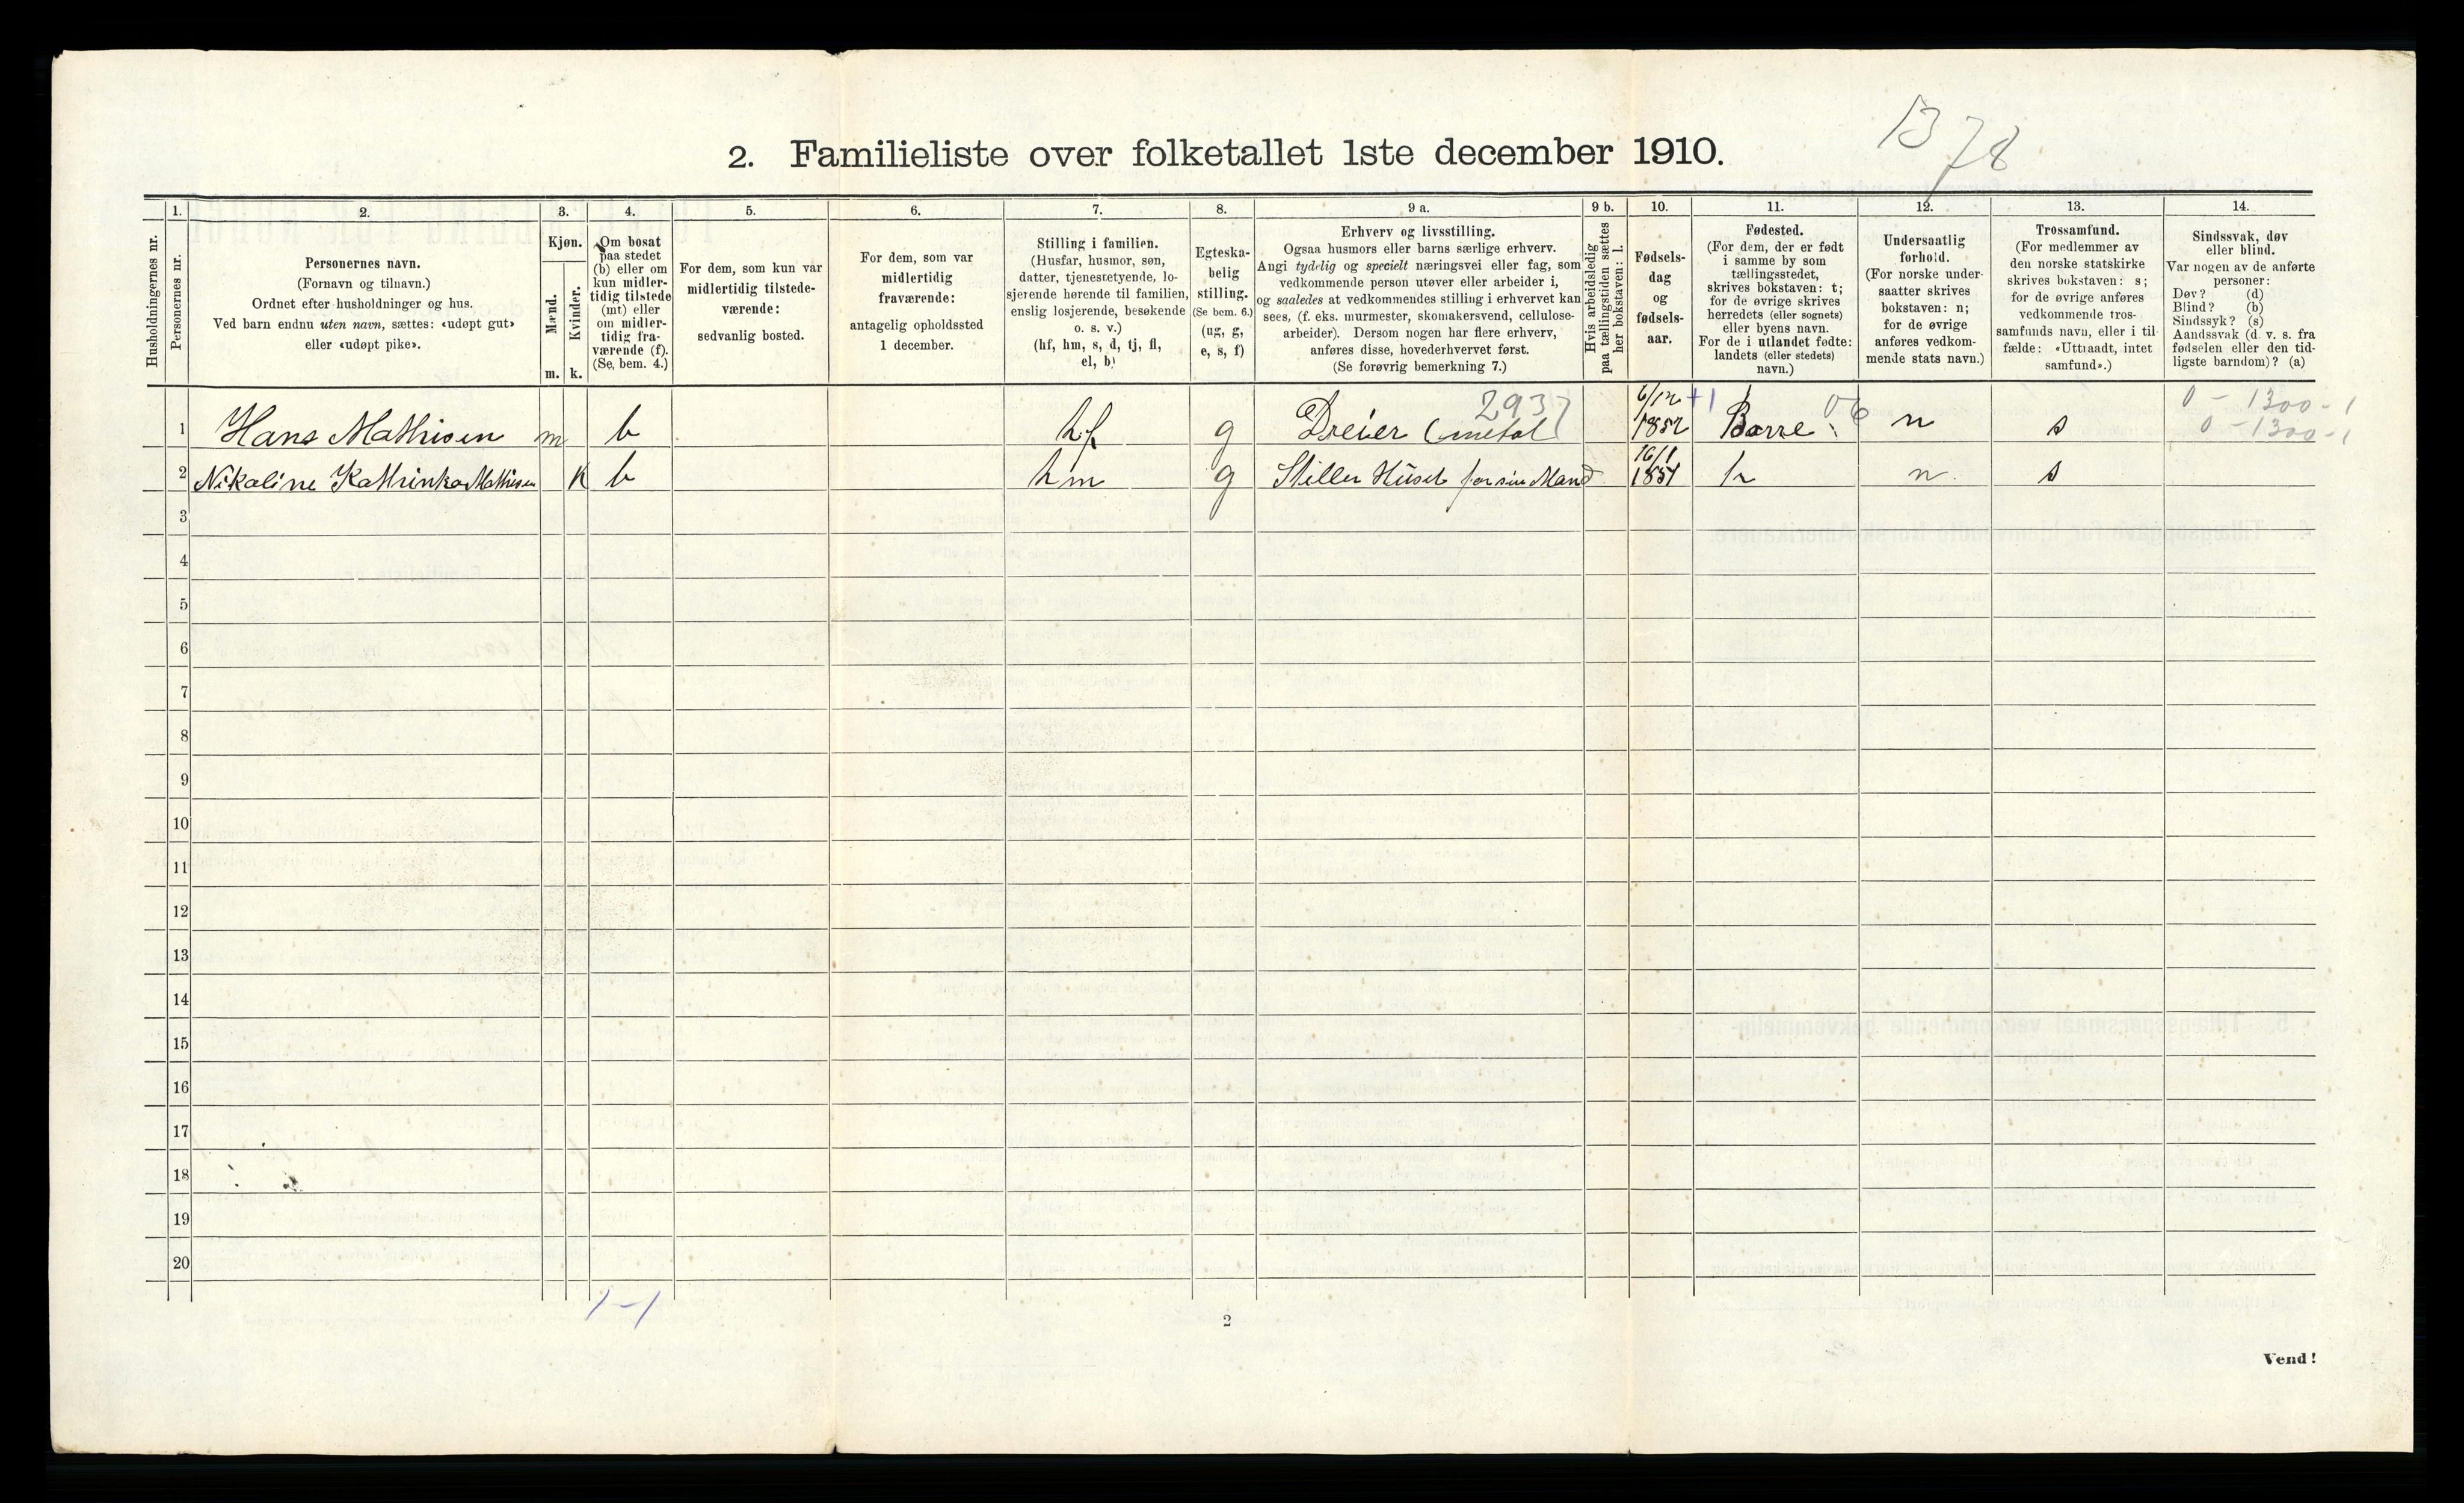 1378
2. Familieliste over folketallet 1ste december 1910.
Husholdningernes nr.
1.
Personernes nr.
2.
Personernes navn.
(Fornavn og tilnavn.)
Ordnet efter husholdninger og hus.
Ved barn endnu uten navn, sættes: «udøpt gut»
eller «udøpt pike».
3.
Kjøn.
Mænd.
m.
Kvinder.
k.
4.
Om bosat
paa stedet
(b) eller om
kun midler-
tidig tilstede
(mt) eller
om midler-
tidig fra-
værende (f).
(Se bem. 4.)
5.
For dem, som kun var
midlertidig tilstede-
værende:
sedvanlig bosted.
6.
For dem, som var
midlertidig
fraværende:
antagelig opholdssted
1 december.
7.
Stilling i familien.
(Husfar, husmor, søn,
datter, tjenestetyende, lo-
sjerende hørende til familien,
enslig losjerende, besøkende
o. s. v.)
(hf, hm, s, d, tj, fl,
el, b)
8.
Egteska-
belig
stilling.
(Se bem. 6.)
(ug, g,
e, s, f)
9 a.
Erhverv og livsstilling.
Ogsaa husmors eller barns særlige erhverv.
Angi tydelig og specielt næringsvei eller fag, som
vedkommende person utøver eller arbeider i,
og saaledes at vedkommendes stilling i erhvervet kan
sees, (f. eks. murmester, skomakersvend, cellulose-
arbeider). Dersom nogen har flere erhverv,
anføres disse, hovederhvervet først.
(Se forøvrig bemerkning 7.)
9 b.
Hvis arbeidsledig
paa tællingstiden sættes
her bokstaven: l.
10.
Fødsels-
dag
og
fødsels-
aar.
11.
Fødested.
(For dem, der er født
i samme by som
tællingsstedet,
skrives bokstaven: t;
for de øvrige skrives
herredets (eller sognets)
eller byens navn.
For de i utlandet fødte:
landets (eller stedets)
navn.)
12.
Undersaatlig
forhold.
(For norske under-
saatter skrives
bokstaven: n;
for de øvrige
anføres vedkom-
mende stats navn.)
13.
Trossamfund.
(For medlemmer av
den norske statskirke
skrives bokstaven: s;
for de øvrige anføres
vedkommende tros-
samfunds navn, eller i til-
fælde: «Uttraadt, intet
samfund».)
14.
Sindssvak, døv
eller blind.
Var nogen av de anførte
personer:
Døv? (d)
Blind? (b)
Sindssyk? (s)
Aandssvak (d. v. s. fra
fødselen eller den tid-
ligste barndom)? (a)
2937 6/12 +1 06 0 - 1300 - 1
1 Hans Mathisen m b hf g Dreier (metal) 1852 Borre n s 0 - 1300 - 1
2 Nikoline Kathinka Mathisen K b hm g Steller Huset for sin Mand 16/1 1851 n s
3
4
5
6
7
8
9
10
11
12
13
14
15
16
17
18
19
20
1-1
2
Vend!